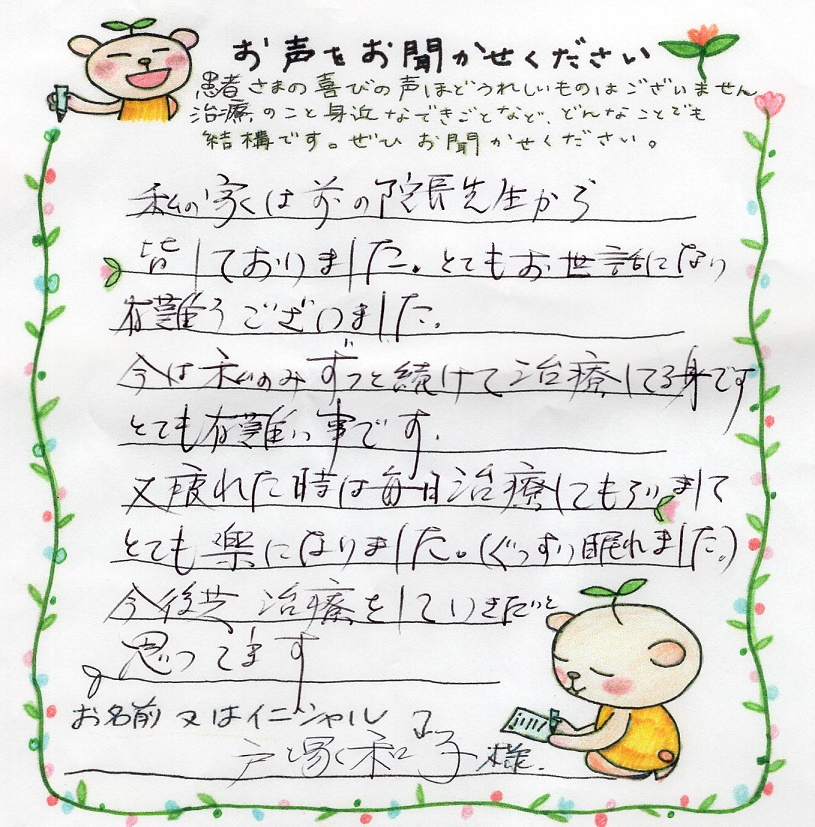 お声をお聞かせください
患者さまの喜びの声ほどうれしいものはございません
治療のこと身近なできごとなど、どんなことでも
結構です。ぜひお聞かせください。
私の家は前の院長先生から
皆しておりました。とてもお世話になり
有難うございました。
今は私のみずっと続けて治療してる身です
とても有難い事です。
又疲れた時は毎日治療してもらいまして
とても楽になりました。(ぐっすり眠れました。)
今後共治療をしていきたいと
思ってます
お名前又はイニシャル
戸塚和子様